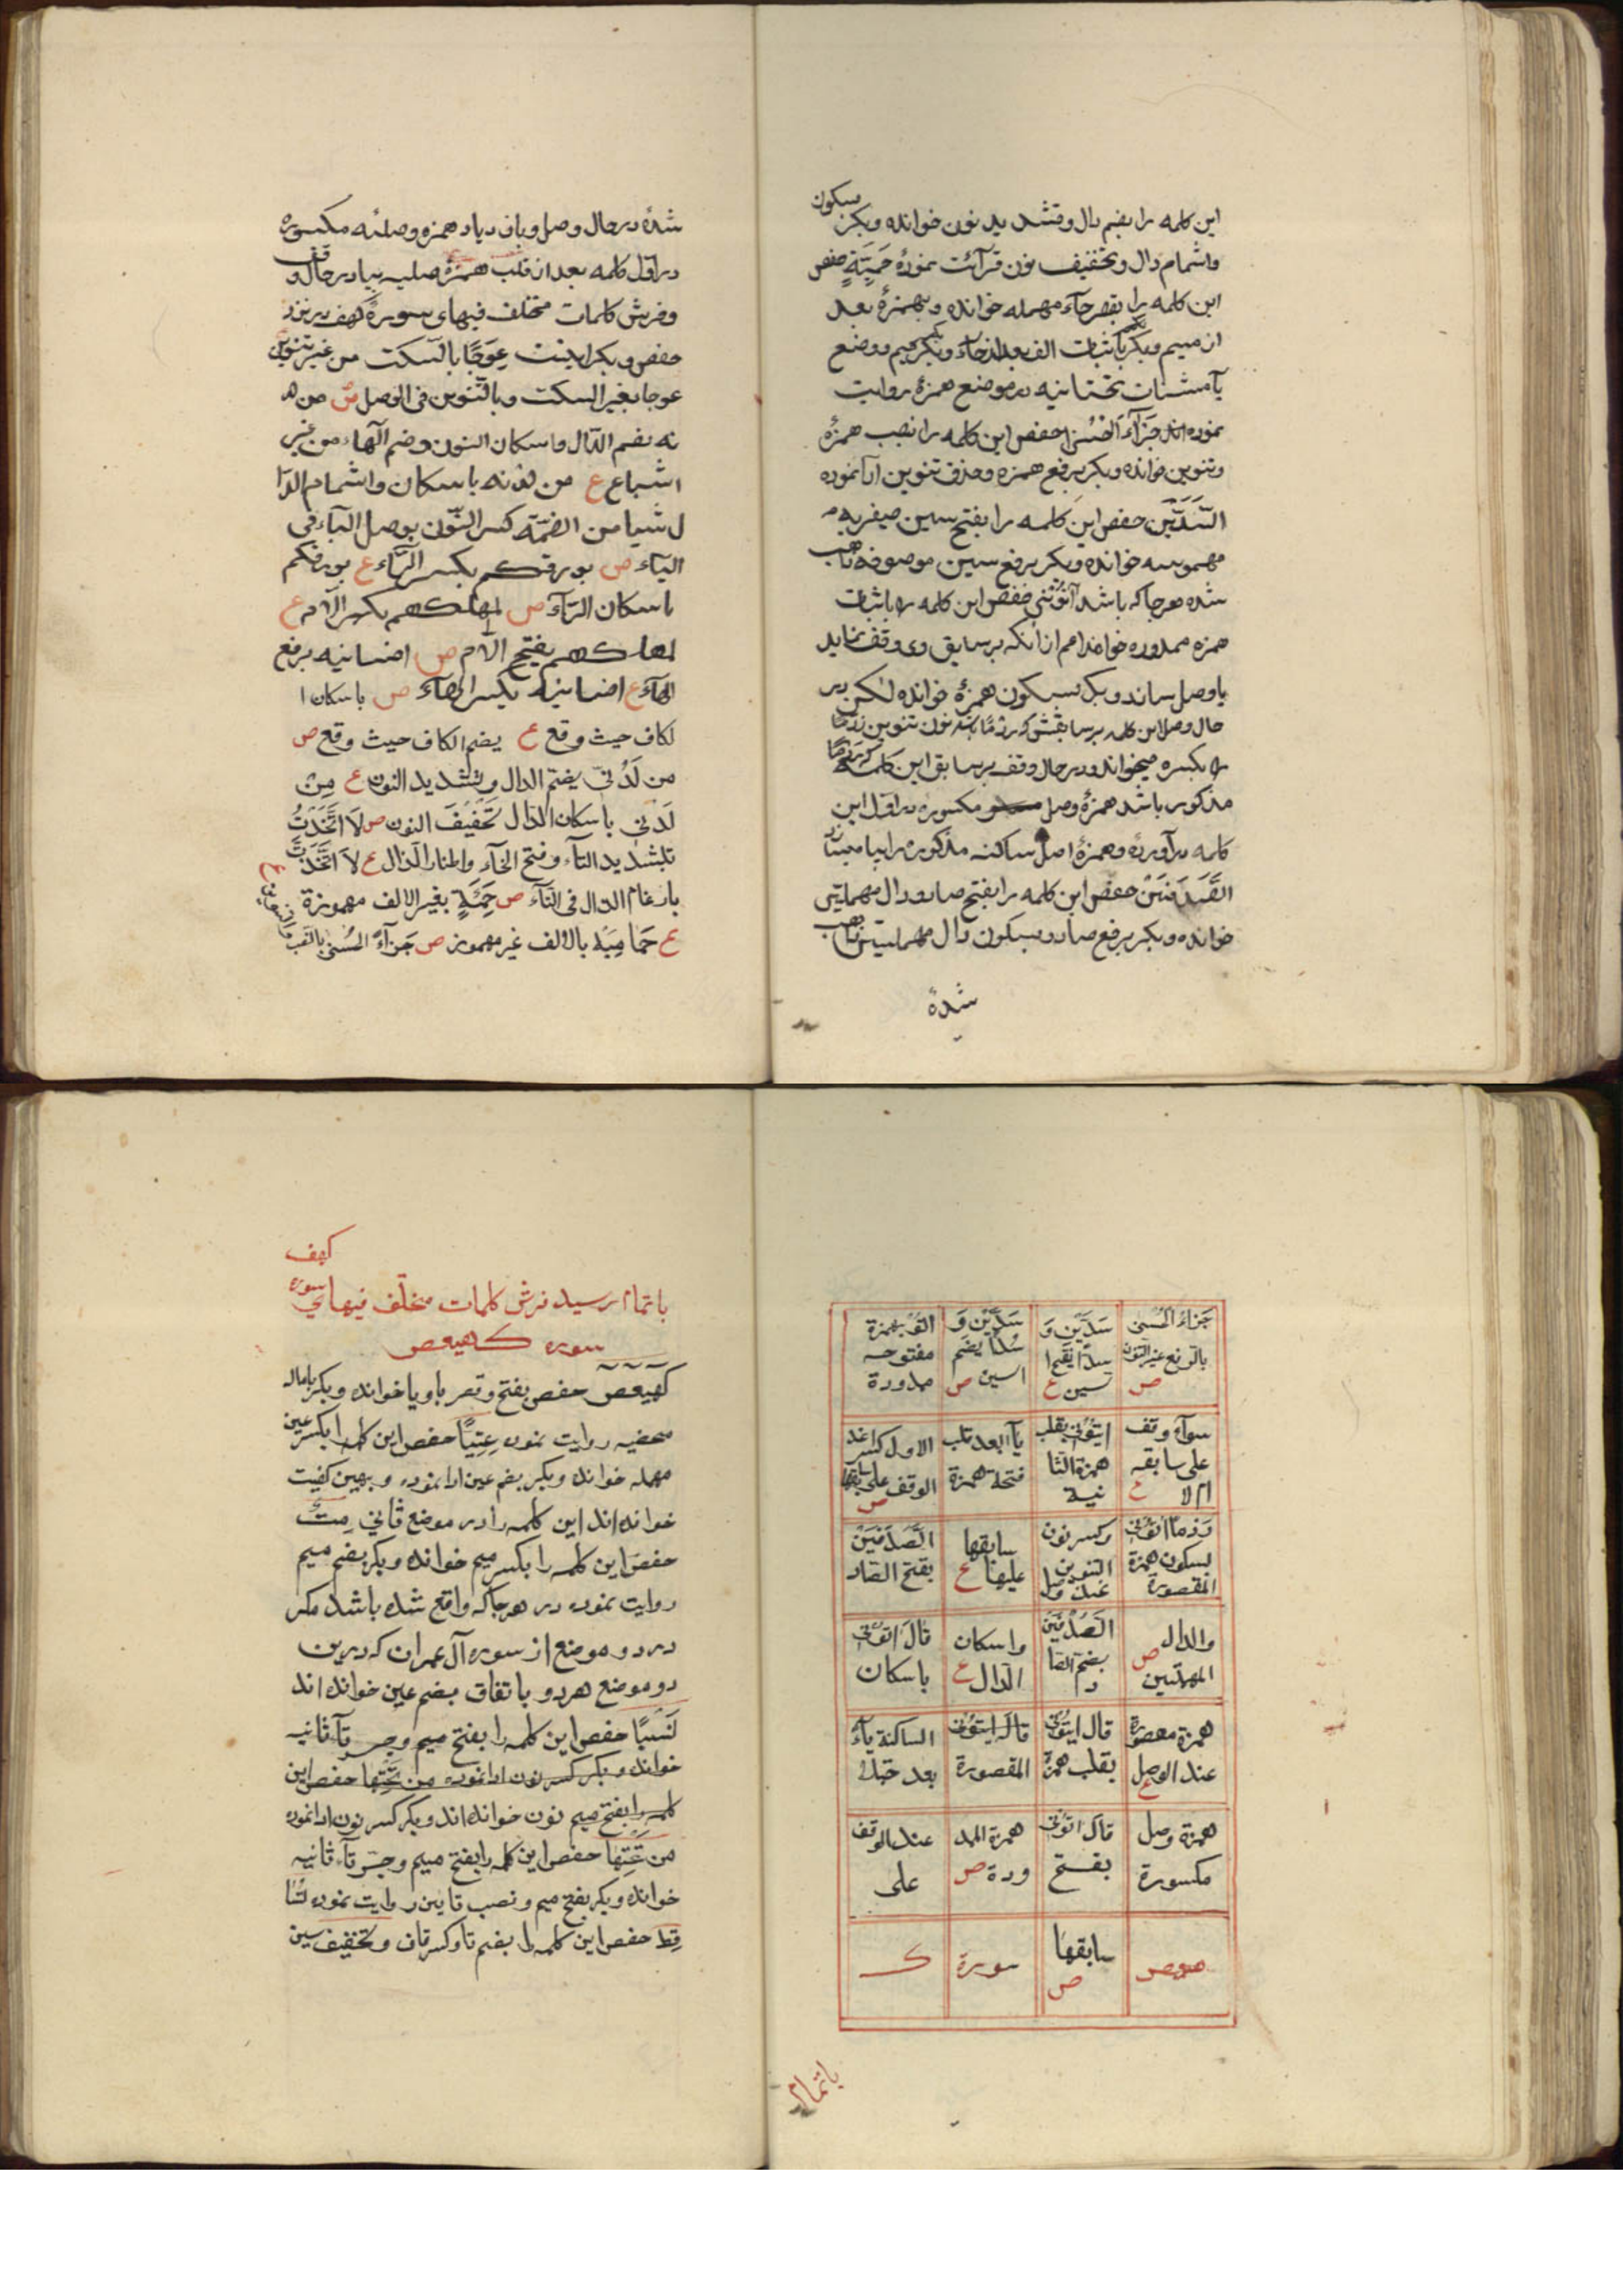 این کلمه را بضم دال و تشدید نون خوانده و بکر بسکون
و اشمام دال و تخفیف نون قرآئت نموده حَمِئَةٍ حفص
این کلمه را بقصر حآء مهمله خوانده و بهمزهٔ بعد
از میم و بکر باثبات الف بعد از حآء و بکسر میم و وضع
یآ مثنات تحتانیه در موضع همزهٔ روایت
نموده اند جَزَآءً الْحُسْنٰی حفص این کلمه را نصب همزهٔ
و تنوین خوانده و بکر برفع همزه و حذف تنوین ادا نموده
السَّدَّیْنِ حفص این کلمه را بفتح سین صفیریه
مهموسه خوانده و بکر برفع سین موصوفه ناهب
شده هرجا که باشد آتُوْنٖی حفص این کلمه را باثبات
همزه ممدوده خواند اعم از آنکه بر سابق وی وقف نماید
یا وصل رساند و بکر بسکون همزهٔ خوانده لکن در
حال وصل این کلمه بر سابقش که رَدْمًا باشد نون تنوین رَدْمًا
را بکسره میخواند و در حال وقف بر سابق این کلمه که رَدْمًا
مذکور باشد همزهٔ وصل مکسوره در اوّل این
کلمه در آورده و همزهٔ اصل ساکنه مذکوره را بیا
الصَّدَفَیْنِ حفص این کلمه را بفتح صاد و دال مهملتین
خوانده و بکر برفع صاد و بسکون دال مهملتین ناهب
شدهٔ
شدهٔ در حال وصل و بازدیاد همزه وصلیه مکسوره
در اوّل کلمه بعد از قلب همزهٔ صلیه بیا در حال وقف
و فرش کلمات مختلف فیهای سورهٔ کهف در نزد
حفص و بکر اینست عِوَجًا بالسکت من غیر تنوین ع
عوجا بغیر السکت و بالتّنوین فی الوصل ص من لد
نه بضم الدّال و اسکان النون و ضم الهآء من غیر
اشباع ع من لدنه باسکان و اشمام الدا
ل شیا من الضمّة کسر النّون بوصل الیآء فی
الیآء ص بورقکم بکسر الرّآء ع بورقکم
باسکان الرّآء ص لمهلکهم بکسر اللّام ع
لمهلکهم بفتح اللّام ص انسانیه برفع
الهآء ع انسانیه بکسر الهآء ص باسکان ا
لکاف حیث وقع ع بضم الکاف حیث وقع ص
من لَدُنّی بضم الدال و تشدید النون ع مِنْ
لَدْنِی باسکان الدال تخفیف النون ص لَا اتَّخَذْتُ
بتشدید التآء و فتح الخآء و اظهار الذال ع لَا اتَّخَذْتَ
بادغام الذال فی التآء ص حَمِئَةٍ بغیر الالف مهموزة
ع حَامِیَةٍ بالالف غیر مهموز ص جَزَآءً الحُسْنٰی بالنصب
جَزَاءُ الحُسْنٰی بالرفع غیر التنون ص	سَدَّیْنِ وَ سدًّا بفتح ا لسین ع	سَدَّیْنِ وَ سُدًّا بضم السین ص	الف بهمزة مفتوحه ممدودة
سوآء وقف علی سابقه ام لا ع	ایتُوْنی بقلب همزة الثا نیة	یآ ابعد قلب فتحة همزة	الاول کسر عند الوقف علی سابقها ص
رَدْمًا ائتونی بسکون همزة المقصورة	و کسر نون التنوین عند وصل	سابقها علیها ع	الصَّدَفَیْن بفتح الصاد
والدال المهملتین ص	الصُدْفَیْن بضم الصا د	و اسکان الدال ع	قَالَ اتُوْنی باسکان
همزة مقصورة عند الوصل ع	قال ایتُوْنی بقلب همزة	قَالَ ایتُوْنی المقصورة	الساکنة یآء بعد
همزة وصل مکسورة	قال اتونی بفتح	همزة المد ودة ص	عند الوقف علی
	سابقها ص	سورة	ک
باتمام
کهف
باتمام رسید فرش کلمات مختلف فیهای سوره
سوره کهیعص
کهیعص حفص بفتح و قصر ها و یا خوانده و بکر باماله
محضیه روایت نموده عِتِیًّا حفص این کلمه را بکسر عین
مهمله خوانده و بکر بضم عین ادا نموده و بهمین کیفیت
خوانده اند این کلمه را در موضع ثانی مِتُّ
حفص این کلمه را بکسر میم خوانده و بکر بضم میم
روایت نموده در هرجا که واقع شده باشد مکر
در دو موضع از سوره آل عمران که درین
دو موضع هر دو باتفاق بضم عین خوانده اند
نَسْیًا حفص این کلمه را بفتح میم و جر تآ ثانیه
خوانده و بکر کسر نون ادا نموده من تَحْتِها حفص این
کلمه را بفتح میم نون خوانده اند و بکر کسر نون ادا نموده
من تَحْتِهَا حفص این کلمه را بفتح میم و جر تآء ثانیه
خوانده و بکر بفتح میم و نصب تا بین روایت نموده تُسٰا
قِط حفص این کلمه را بضم تا و کسر قاف و تخفیف سین